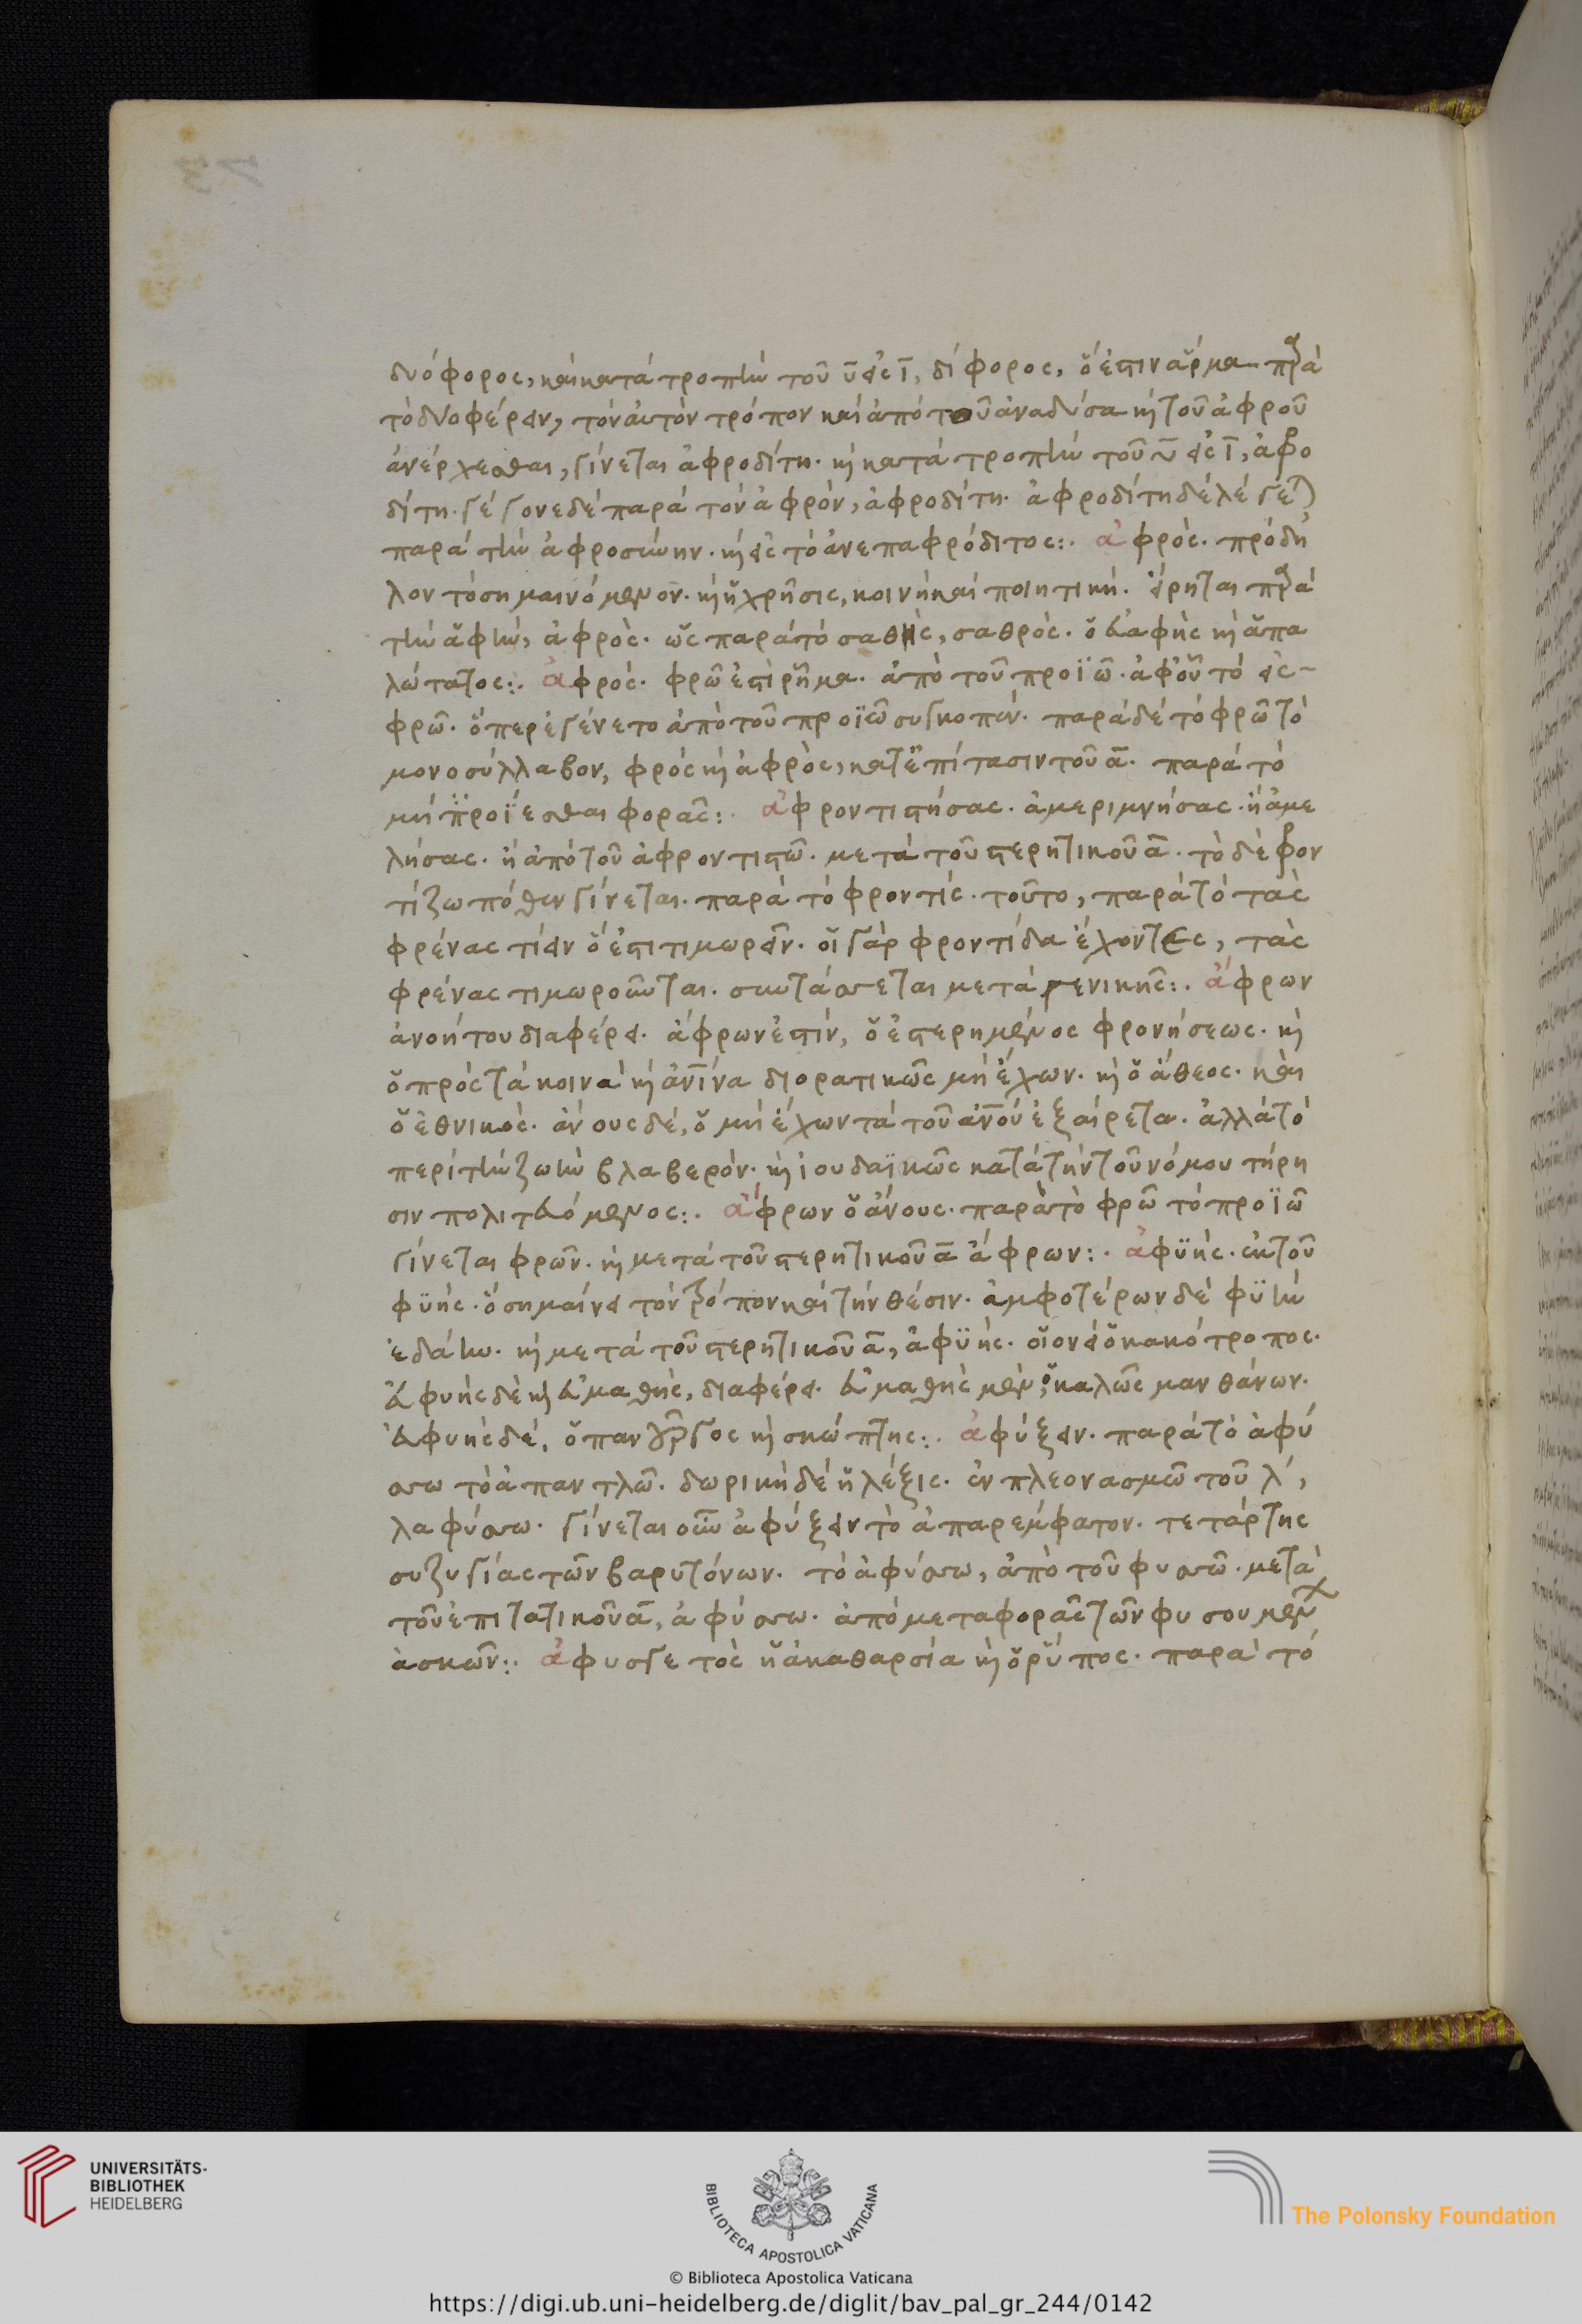 δυόφορος, καὶ κατὰ τροπὴν τοῦ ῡ εἰς ῑ, δίφορος, ὅ ἐστιν ἅρμα παρὰ
τὸ δυοφέρειν, τὸν αὐτὸν τρόπον καὶ ἀπὸ τοῦ ἀναδῦσα κὴ τοῦ ἀφροῦ
ἀνέρχεσθαι, γίνεται ἀφροδίτη. κὴ κατὰ τροπὴν τοῦ ῡ εἰς ῑ, ἀφρο
δίτη. γέγονε δὲ παρὰ τὸν ἀφρόν, ἀφροδίτη. ἀφροδίτη δὲ λέγεται
παρὰ τὴν ἀφροσύνην. κὴ εἰς τὸ ἀνεπαφρόδιτος:. ἀφρός. πρόδη
λον τὸ σημαινόμενον. κὴ ἡ χρῆσις, κοινὴ καὶ ποιητική. εἴρηται παρὰ
τὴν ἁφὴν, ἀφρός. ὡς παρὰ τὸ σαθὴς, σαθρός. ὁ εὐαφὴς κὴ ἁπα
λώτατος:. ἀφρός. φρῶ ἐστὶ ῥῆμα. ἀπὸ τοῦ προϊῶ. ἀφ' οὗ τὸ εἰς-
φρῶ. ὅπερ ἐγένετο ἀπὸ τοῦ προϊῶ συγκοπεῖν. παρὰ δὲ τὸ φρῶ τὸ
μονοσύλλαβον, φρός κὴ ἀφρὸς, κατ' ἐπίτασιν τοῦ ᾱ. παρὰ τὸ
μὴ προΐεσθαι φορᾶς:. ἀφροντιστήσας. ἀμεριμνήσας. ἢ ἀμε
λήσας. ἢ ἀπὸ τοῦ ἀφροντιστῶ. μετὰ τοῦ στερητικοῦ ᾱ. τὸ δὲ φρον
τίζω πόθεν γίνεται. παρὰ τὸ φροντίς. τοῦτο, παρὰ τὸ τὰς
φρένας τίειν ὅ ἐστι τιμωρεῖν. οἱ γὰρ φροντίδα ἔχοντες, τὰς
φρένας τιμωροῦνται. συντάσσεται μετὰ γενικῆς:. ἄφρων
ἀνοήτου διαφέρει. ἄφρων ἐστίν, ὁ ἐστερημένος φρονήσεως. κὴ
ὁ πρὸς τὰ κοινὰ κὴ ἀνῖνα διορατικῶς μὴ ἔχων. κὴ ὁ ἄθεος. καὶ
ὁ ἐθνικός. ἄνους δέ, ὁ μὴ ἔχων τὰ τοῦ ἀνοῦ ἐξαίρετα. ἀλλὰ τὸ
περὶ τὴν ζωὴν βλαβερόν. κὴ ἰουδαϊκῶς κατὰ τὴν τοῦ νόμου τήρη
σιν πολιτευόμενος:. ἄφρων ὁ ἄνους. παρὰ τὸ φρῶ τὸ προϊῶ
γίνεται φρῶν. κὴ μετὰ τοῦ στερητικοῦ ᾱ ἄφρων:. ἀφϋής. ἐκ τοῦ
φϋής. ὃ σημαίνει τὸν τρόπον καὶ τὴν θέσιν. ἀμφοτέρων δὲ φϋὴν
ἐδάην. κὴ μετὰ τοῦ στερητικοῦ ᾱ, ἀφϋής. οἱονεὶ ὁ κακότροπος.
εὐφυὴς δὲ κὴ εὐμαθὴς, διαφέρει. εὐμαθὴς μὲν, ὁ καλῶς μανθάνων.
εὐφυὴς δέ, ὁ πανοῦργος κὴ σκώπτης:. ἀφύξειν. παρὰ τὸ ἀφύ
σσω τὸ ἀπαντλῶ. δωρικὴ δὲ ἡ λέξις. ἐν πλεονασμῶ τοῦ λ̄,
λαφύσσω. γίνεται οὖν ἀφύξειν τὸ ἀπαρέμφατον. τετάρτης
συζυγίας τῶν βαρυτόνων. τὸ ἀφύσσω, ἀπὸ τοῦ φυσσῶ. μετὰ
τοῦ ἐπιτατικοῦ ᾱ, ἀφύσσω. ἀπὸ μεταφορᾶς τῶν φυσουμένων
ἀσκῶν:. ἀφυσγετὸς ἡ ἀκαθαρσία κὴ ὁ ῥύπος. παρὰ τὸ
UNIVERSITÄTS-
BIBLIOTHEK
HEIDELBERG
BIBLIOTECA APOSTOLICA VATICANA
The Polonsky Foundation
© Biblioteca Apostolica Vaticana
https://digi.ub.uni-heidelberg.de/diglit/bav_pal_gr_244/0142